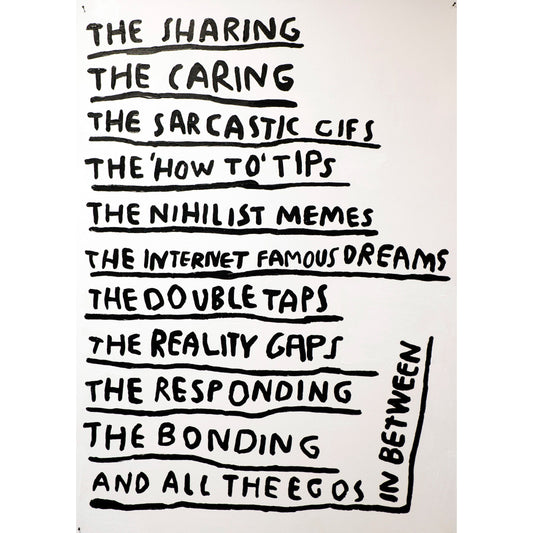 THE SHARING
THE CARING
THE SARCASTIC GIFS
THE 'HOW TO' TIPS
THE NIHILIST MEMES
THE INTERNET FAMOUS DREAMS
THE DOUBLE TAPS
THE REALITY GAPS
THE RESPONDING
THE BONDING
AND ALL THE EGOS
IN BETWEEN